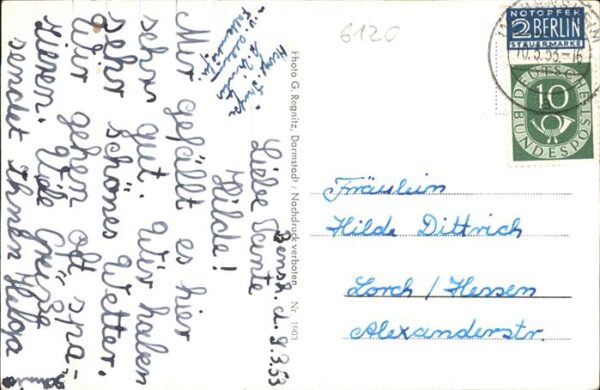 Bensh. d. 9.3.53
Liebe Tante
Hilde!
Mir gefällt es hier
sehr gut. Wir haben
sehr schönes Wetter.
Wir gehen oft spa-
zieren. Viele Grüße
sendet Ihnen Helga
Photo G. Regnitz, Darmstadt / Nachdruck verboten Nr. 1903
6120
NOTOPFER
2 BERLIN
STEUERMARKE
10
DEUTSCHE
BUNDESPOST
Fräulein
Hilde Dittrich
Lorch / Hessen
Alexanderstr.